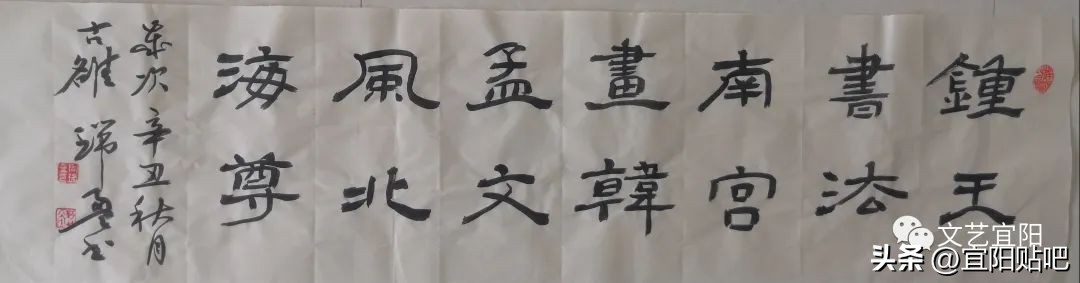 鍾王
書法
南宮
畫韓
孟文
風北
海尊
歲次辛丑秋月
古雒 瑞
文艺宜阳
头条 @宜阳贴吧